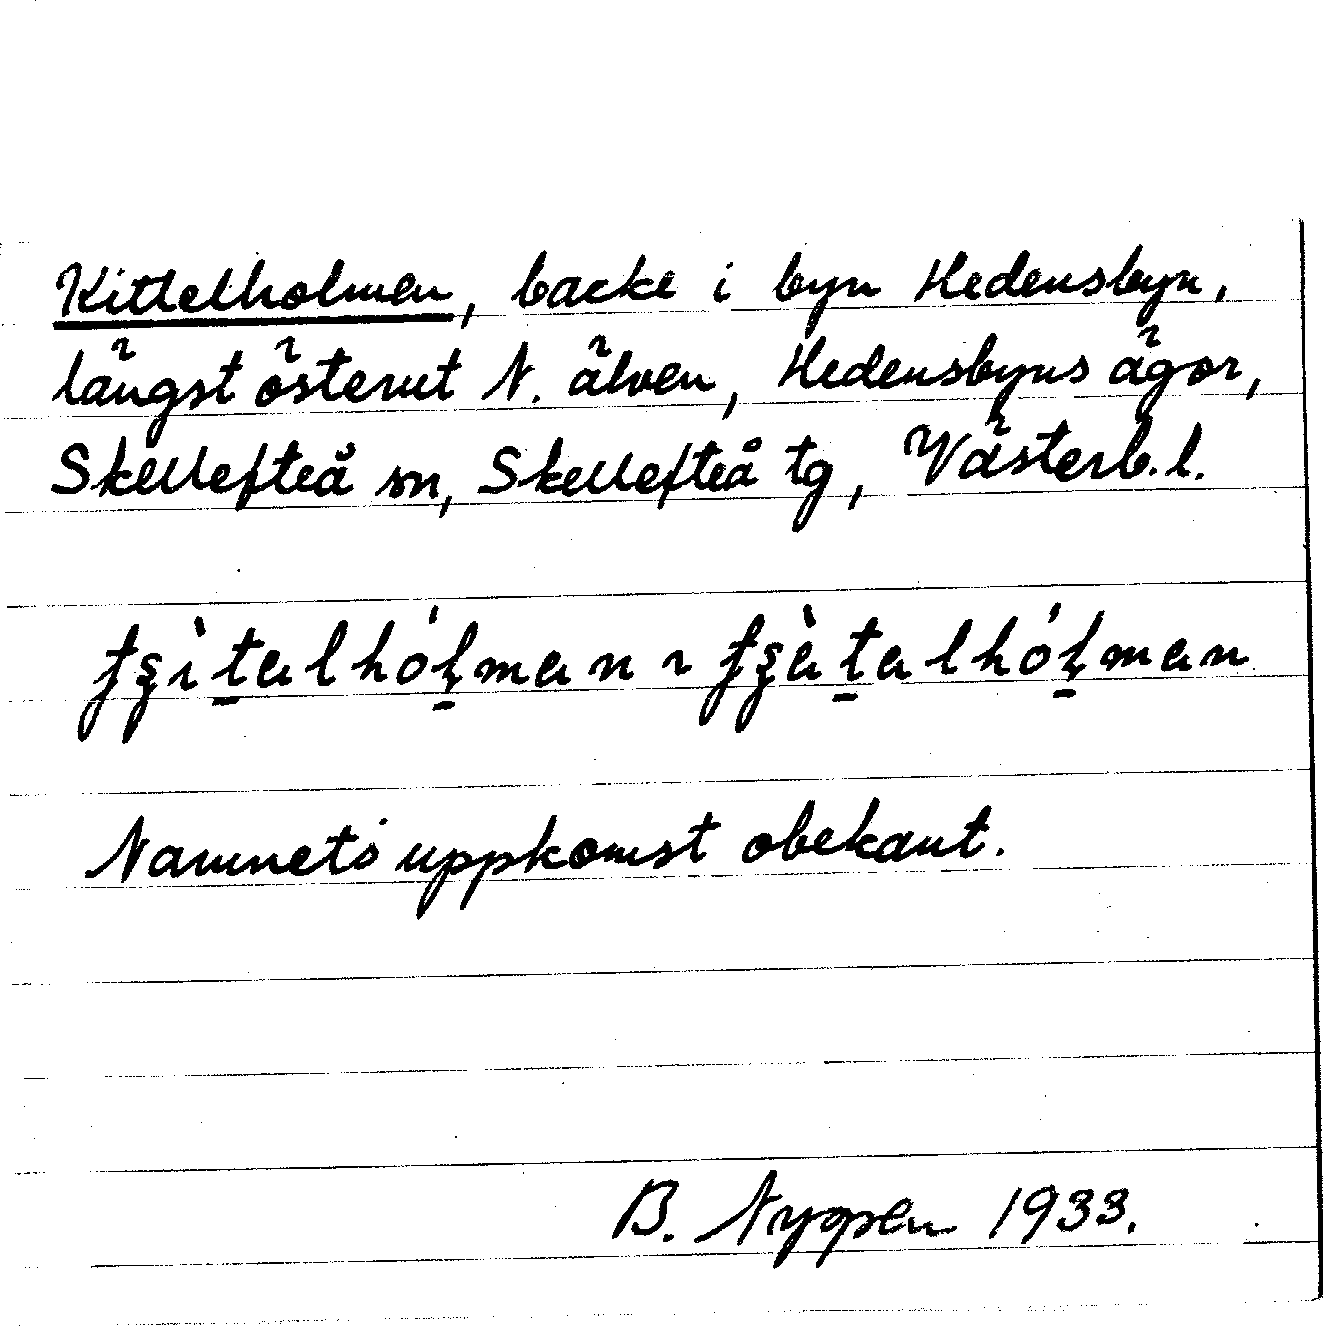 Kittelholmen, backe i byn Hedensbyn,
längst österut N. älven, Hedensbyns ägor,
Skellefteå sn, Skellefteå tg, Västerb. l.
Namnets uppkomst obekant.
B. Nyppen 1933.